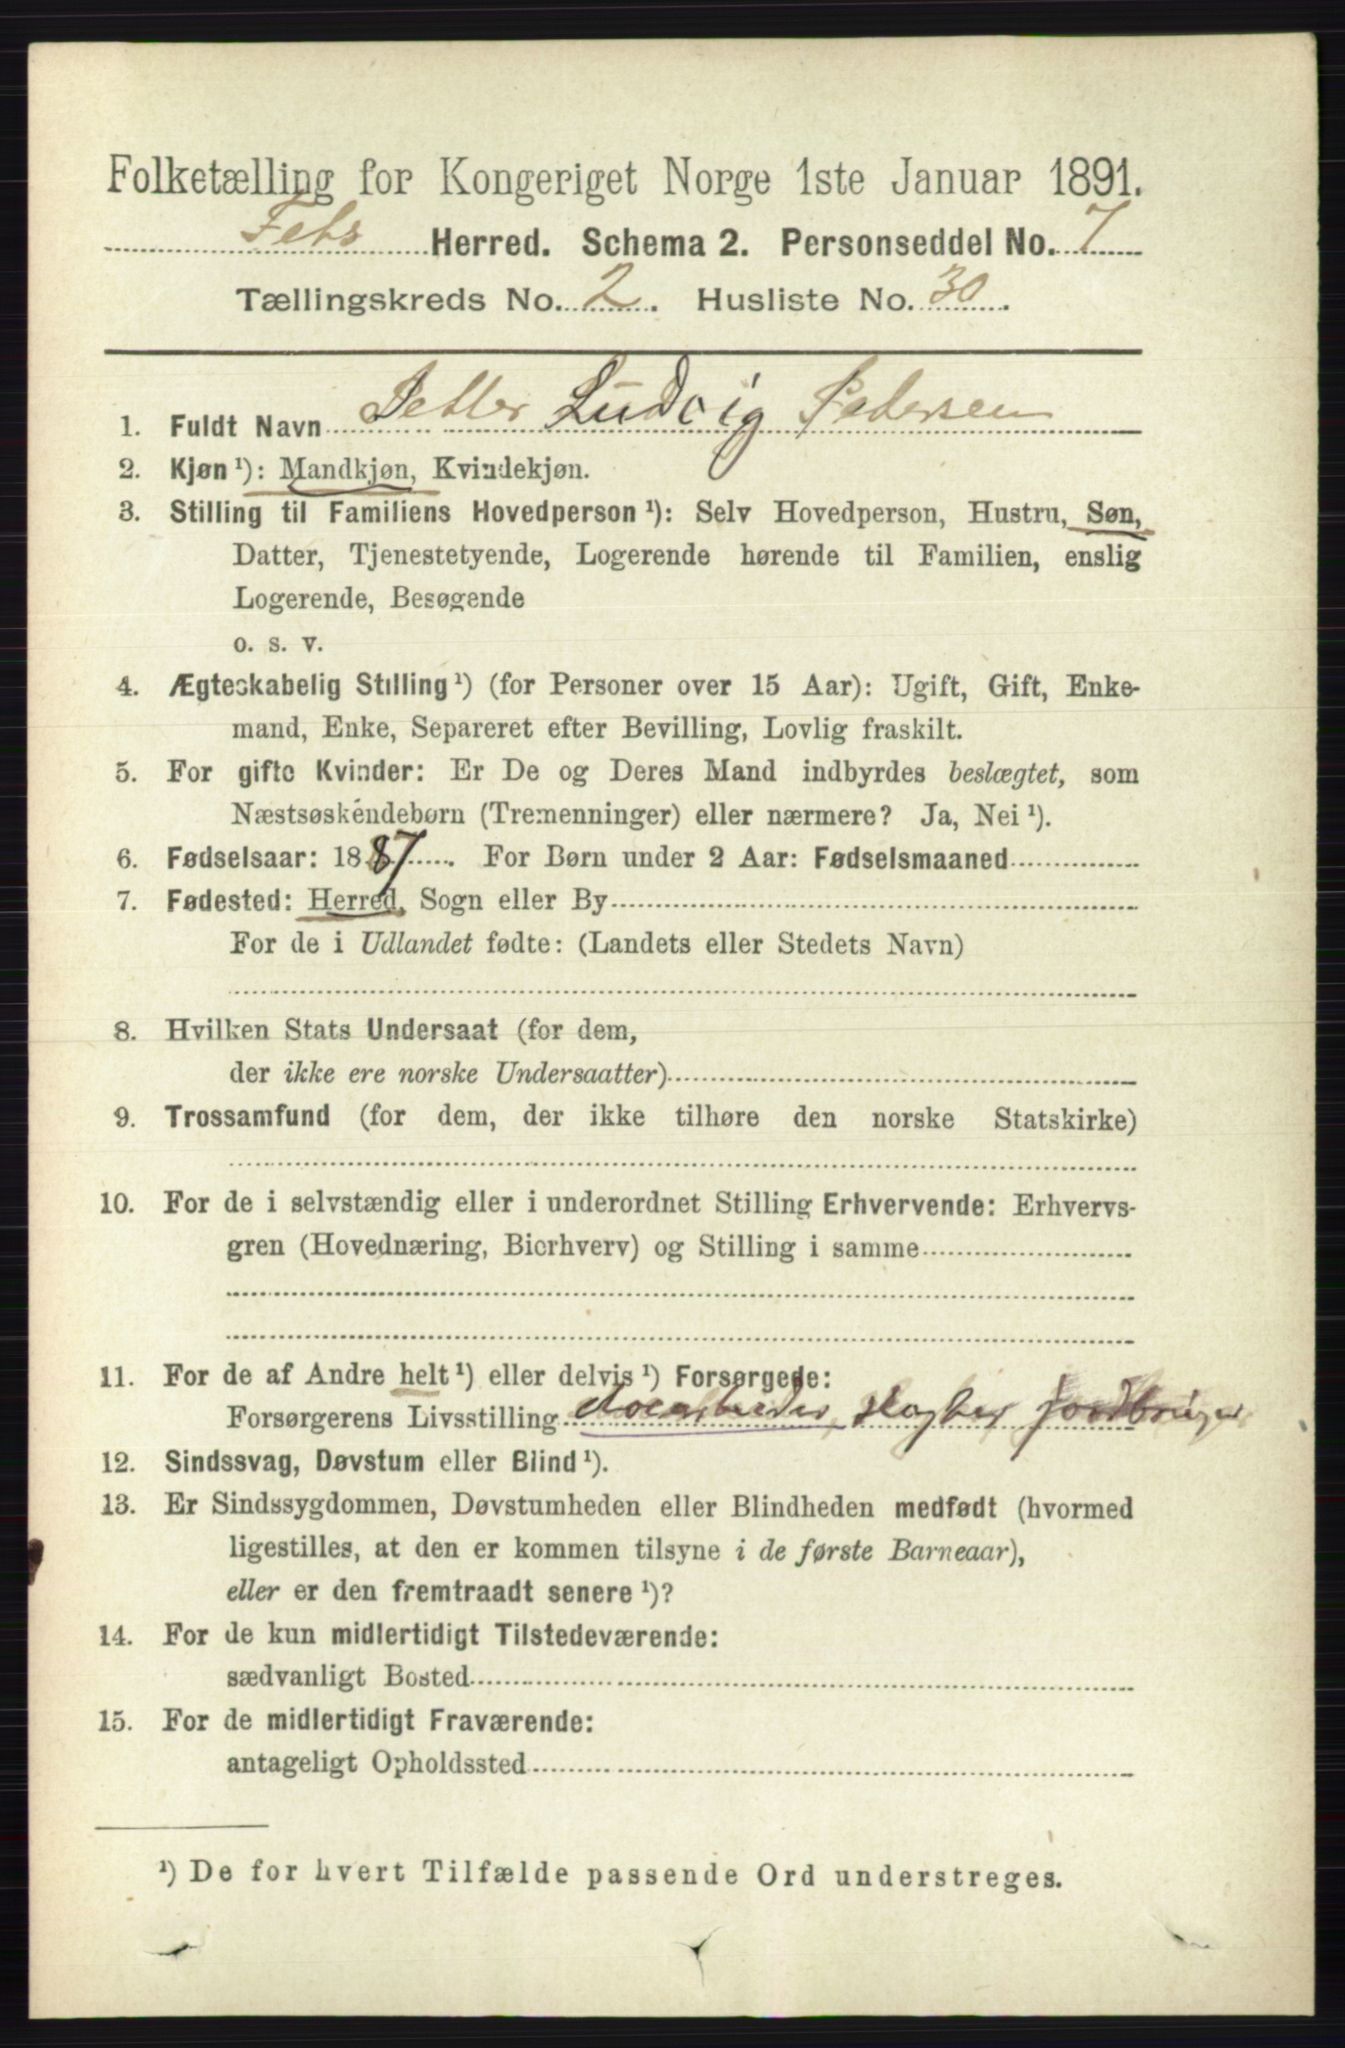 Folketælling for Kongeriget Norge 1ste Januar 1891.
Fets Herred. Schema 2. Personseddel No. 7
Tællingskreds No. 2. Husliste No. 30.
1. Fuldt Navn Ludvig Pedersen
2. Kjøn ¹): Mandkjøn, Kvindekjøn.
3. Stilling til Familiens Hovedperson ¹): Selv Hovedperson, Hustru, Søn,
Datter, Tjenestetyende, Logerende hørende til Familien, enslig
Logerende, Besøgende
o. s. v.
4. Ægteskabelig Stilling ¹) (for Personer over 15 Aar): Ugift, Gift, Enke-
mand, Enke, Separeret efter Bevilling, Lovlig fraskilt.
5. For gifte Kvinder: Er De og Deres Mand indbyrdes beslægtet, som
Næstsøskendebørn (Tremenninger) eller nærmere? Ja, Nei ¹).
6. Fødselsaar: 1887. For Børn under 2 Aar: Fødselsmaaned
7. Fødested: Herred, Sogn eller By
For de i Udlandet fødte: (Landets eller Stedets Navn)
8. Hvilken Stats Undersaat (for dem,
der ikke ere norske Undersaatter)
9. Trossamfund (for dem, der ikke tilhøre den norske Statskirke)
10. For de i selvstændig eller i underordnet Stilling Erhvervende: Erhvervs-
gren (Hovednæring, Bierhverv) og Stilling i samme
11. For de af Andre helt ¹) eller delvis ¹) Forsørgede:
Forsørgerens Livsstilling slagter jordbruger
12. Sindssvag, Døvstum eller Blind ¹).
13. Er Sindssygdommen, Døvstumheden eller Blindheden medfødt (hvormed
ligestilles, at den er kommen tilsyne i de første Barneaar),
eller er den fremtraadt senere ¹)?
14. For de kun midlertidigt Tilstedeværende:
sædvanligt Bosted
15. For de midlertidigt Fraværende:
antageligt Opholdssted
¹) De for hvert Tilfælde passende Ord understreges.